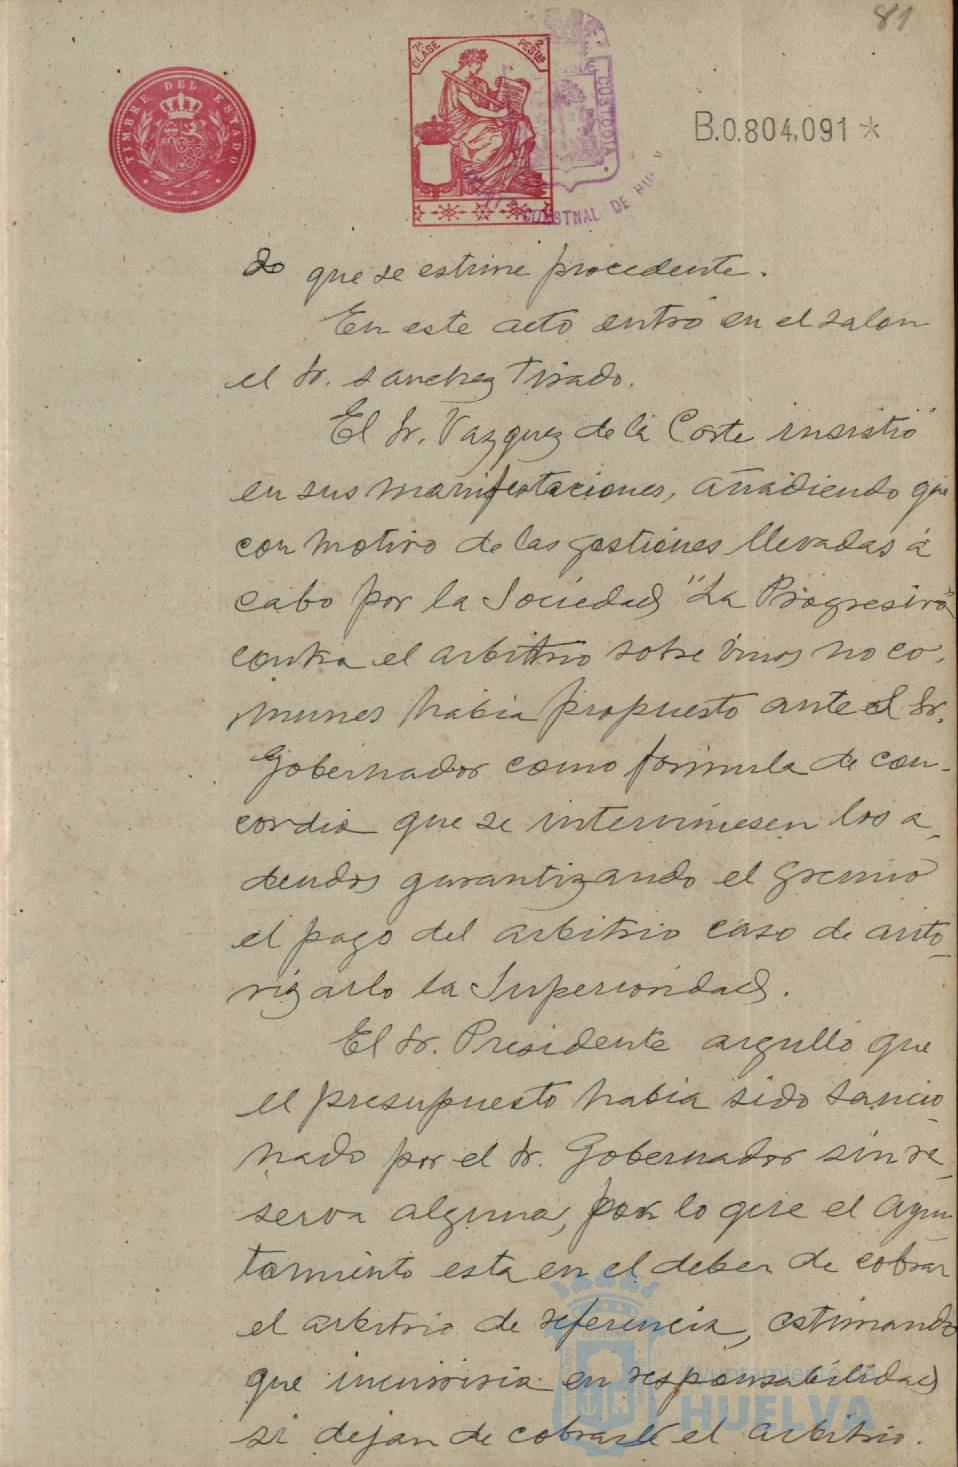 81
TIMBRE DEL ESTADO
7ª CLASE
2 PESTAS
CUSTODIA
CONSTNAL DE HU
B.0.804.091*
do que se estime procedente.
En este acto entró en el salon
el Sr. Sanchez Tirado.
El Sr. Vazquez de la Corte insistió
en sus manifestaciones, añadiendo que
con motivo de las gestiones llevadas á
cabo por la Sociedad "La Progresiva"
contra el arbitrio sobre vinos no co-
munes habia propuesto ante el Sr.
Gobernador como formula de con-
cordia que se interviniesen los a-
deudos garantizando el gremio
el pago del arbitrio caso de auto-
rizarlo la Superioridad.
El Sr. Presidente arguyó que
el presupuesto habia sido sancio-
nado por el Sr. Gobernador sin re-
serva alguna, por lo que el Ayun-
tamiento esta en el deber de cobrar
el arbitrio de referencia, estimando
que incurriria en responsabilidad
si dejan de cobrarse el arbitrio.
Ayuntamiento de
HUELVA